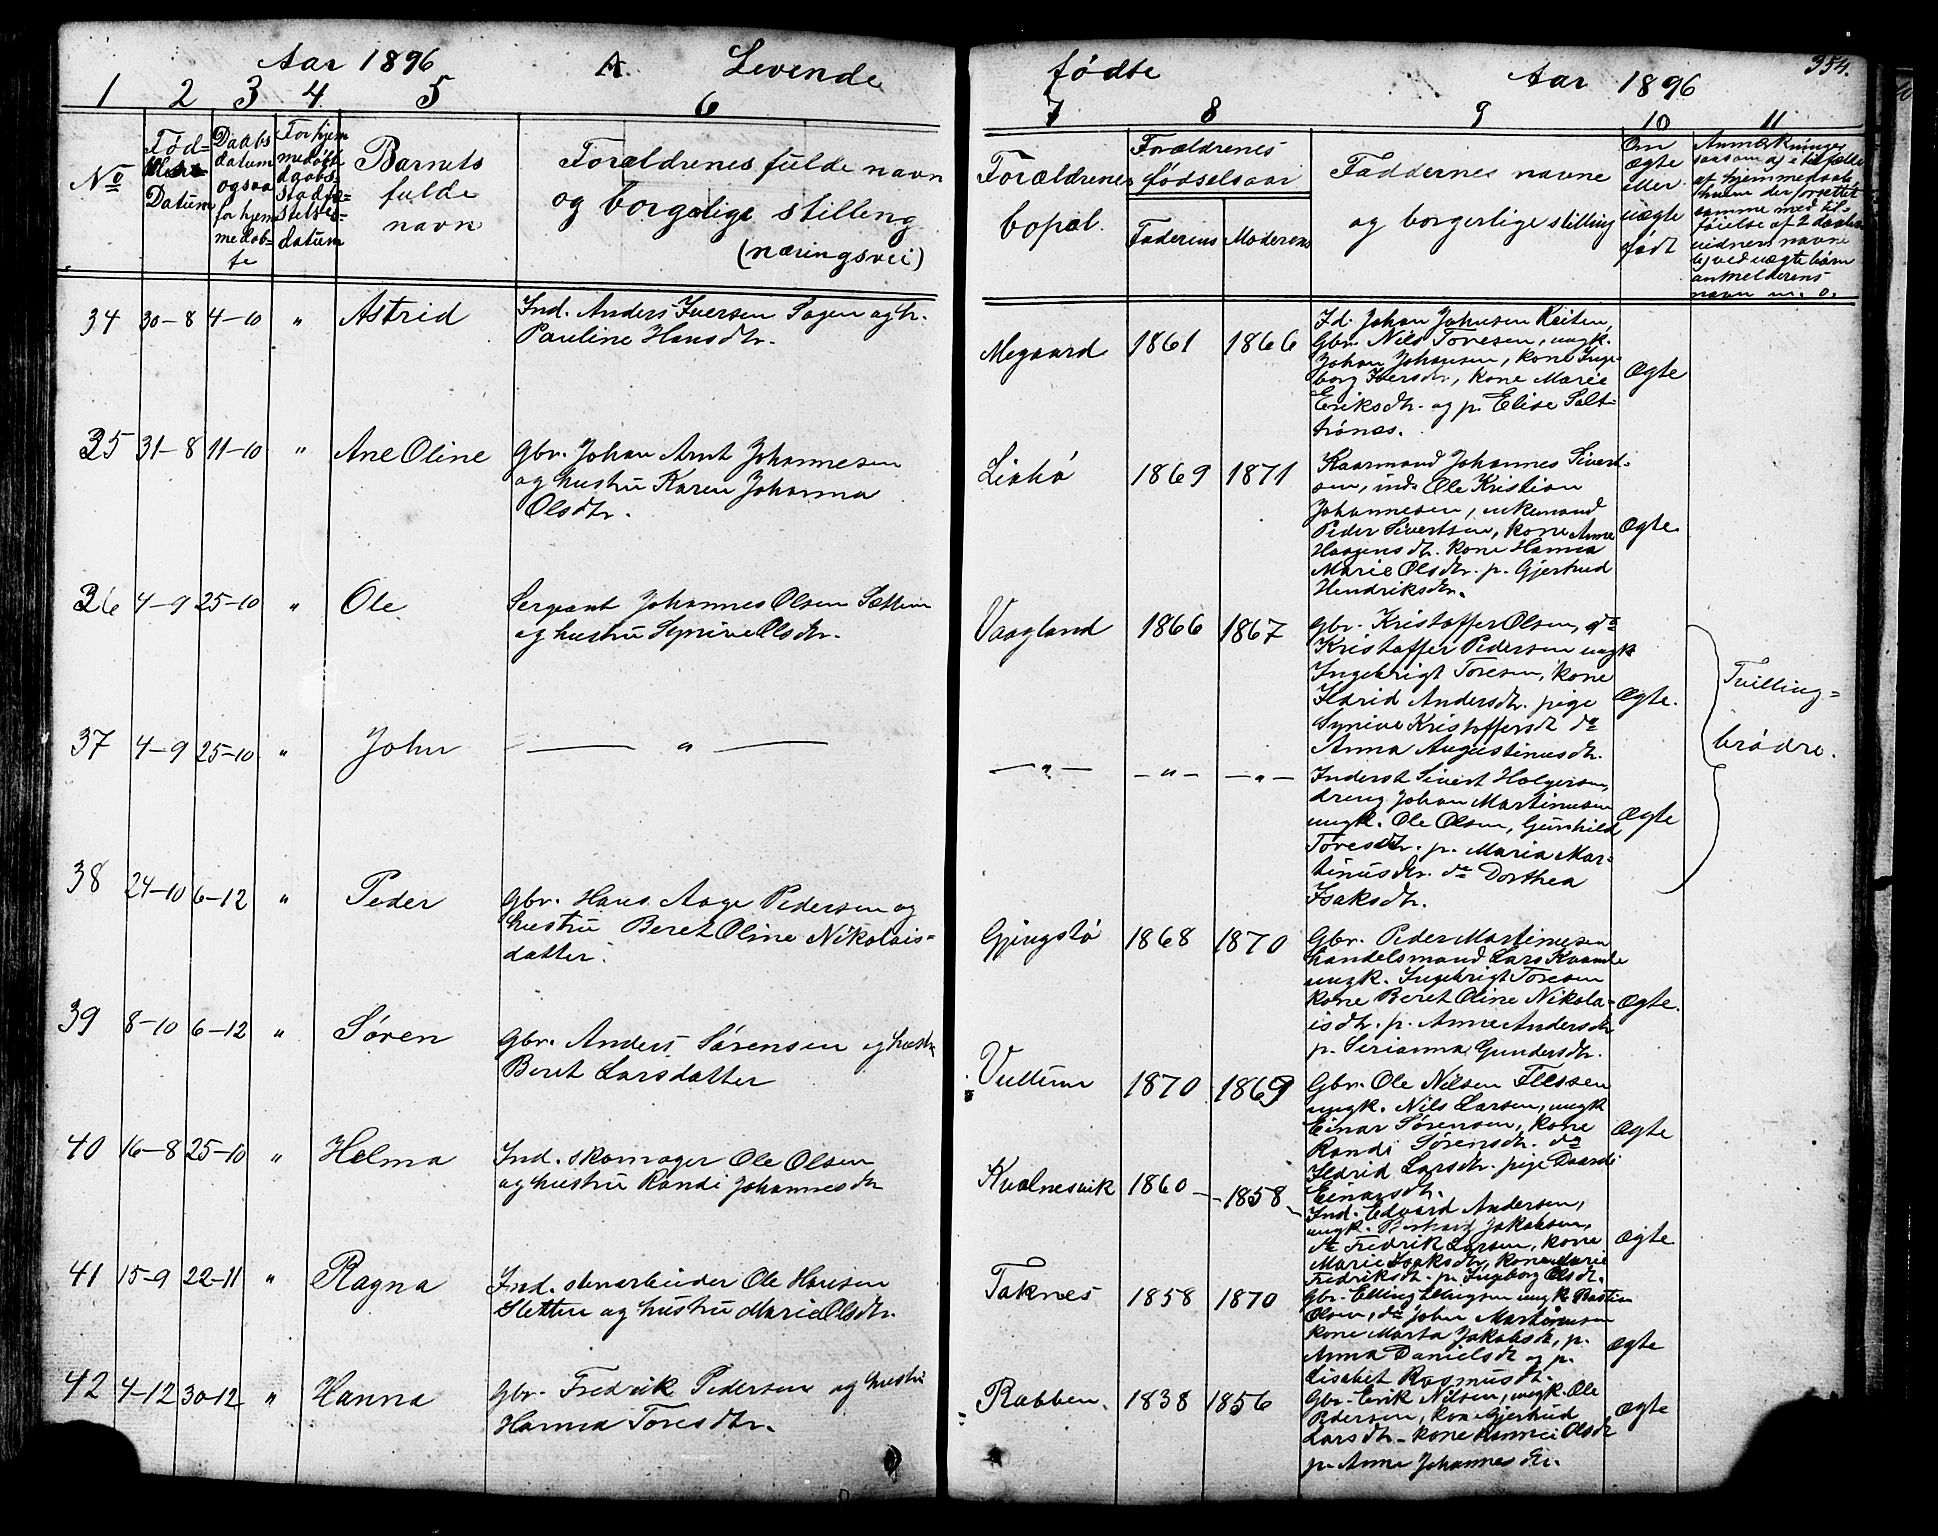 Aar 1896 A. Levende
1 2 3 4. 5 6
No
Fød-
Datum
Daabs
datum
ogsaa
for hjem
medøb-
te
For hjem
medøbt
daabs-
stadfæ-
stelses-
datum
Barnets
fulde
navn
Forældrenes fulde navn
og borgerlige stilling
(næringsvei)
34 30-8 4-10 " Astrid Ind. Anders Iversen Sagen og h.
Pauline Hansdtr.
35 31-8 11-10 " Ane Oline Gbr. Johan Arnt Johannesen
og hustru Karen Johanna
Olsdtr.
36 4-9 25-10 " Ole Sergeant Johannes Olsen Sættem
og hustru Synive Olsdtr.
37 4-9 25-10 " John — " —
38 24-10 6-12 " Peder Gbr. Hans Aage Pedersen og
hustru Beret Oline Nikolais-
datter.
39 8-10 6-12 " Søren Gbr. Anders Sørensen og hustr
Beret Larsdatter
40 16-8 25-10 " Helma Ind. skomager Ole Olsen
og hustru Randi Johannesdtr
41 15-9 22-11 " Ragna Ind. stenarbeider Ole Hansen
Sletten og hustru Marie Olsdtr.
42 4-12 30-12 " Hanna Gbr. Fredrik Pedersen og hustru
Hanna Toresdtr.
fødte Aar 1896 354.
7 8 9 10 11
Forældrenes
bopæl.
Forældrenes
fødselsaar
Faderens Moderens
Faddernes navne
og borgerlige stilling
Om
ægte
eller
uægte
født
Anmærkninger
saasom a) i tilfælde
af hjemmedaab
hvem der forrettet
samme med til-
føielse af 2 daabs-
vidners navne
b) ved uægte børn
anmelderens
navn m. v.
Megaard 1861 1866 Ægte
Id. Johan Johnsen Reiten,
Gbr. Nils Toresen, ungk.
Johan Johansen, kone Inge-
borg Iversdtr., kone Marie
Eriksdtr. og p. Elise Salt-
trønes.
Liabø 1869 1871 Ægte.
Kaarmand Johannes Sivert-
sen, inds Ole Kristian
Johannesen, enkemand
Peder Sivertsen, kone Anne
Haagensdtr. kone Hanna
Marie Olsdtr. p. Gjertrud
Hendriksdtr.
Vaagland 1866 1867 Ægte.
Gbr. Kristoffer Olsen, do
Kristoffer Pedersen ungk
Ingebrigt Toresen, kone
Ildrid Andersdtr. pige
Synive Kristoffersdt do
Anna Augustinusdtr.
Tvilling-
brødre.
—"— —"— —"— Ægte
Inderst Sivert Holgersen,
dreng Johan Martinusen
ungk. Ole Olsen, Gunhild
Toresdtr. p. Maria Mar-
tinusdtr. do Dorthea
Isaksdtr.
Gjengstø 1868 1870 Ægte.
Gbr. Peder Martinusen
handelsmand Lars Kvande
ungk. Ingebrigt Toresen
kone Beret Oline Nikola-
isdtr. p. Anne Andersdtr
p. Serianna Gundersdtr.
Vullum 1870 1869 Ægte
Gbr. Ole Nilsen Flessen
ungk. Nils Larsen, ungk
Einar Sørensen, kone
Randi Sørensdtr. do
Ildrid Larsdtr. pige Daardi
Einarsdtr.
Kvalnesvik 1860 1858 Ægte
Ind. Edvard Andersen,
ungk. Jakobsen,
do Fredrik Larsen, kone
Marie Isaksdtr., kone Marie
Fredriksdtr. p. Ingeborg Olsdtr.
Taknes 1858 1870 Ægte
Gbr. Elling Ellingsen ungk. Bastian
Olsen, do John Martinusen
kone Marta Jakobsdtr, p.
Anna Danielsdtr og p.
Lisabet Rasmusdtr.
Rabben. 1838 1856 Ægte
Gbr. Erik Nilsen, ungk. Ole
Pedersen, kone Gjertrud
Larsdtr. kone Olsdtr
p. Anne Johannesdtr.